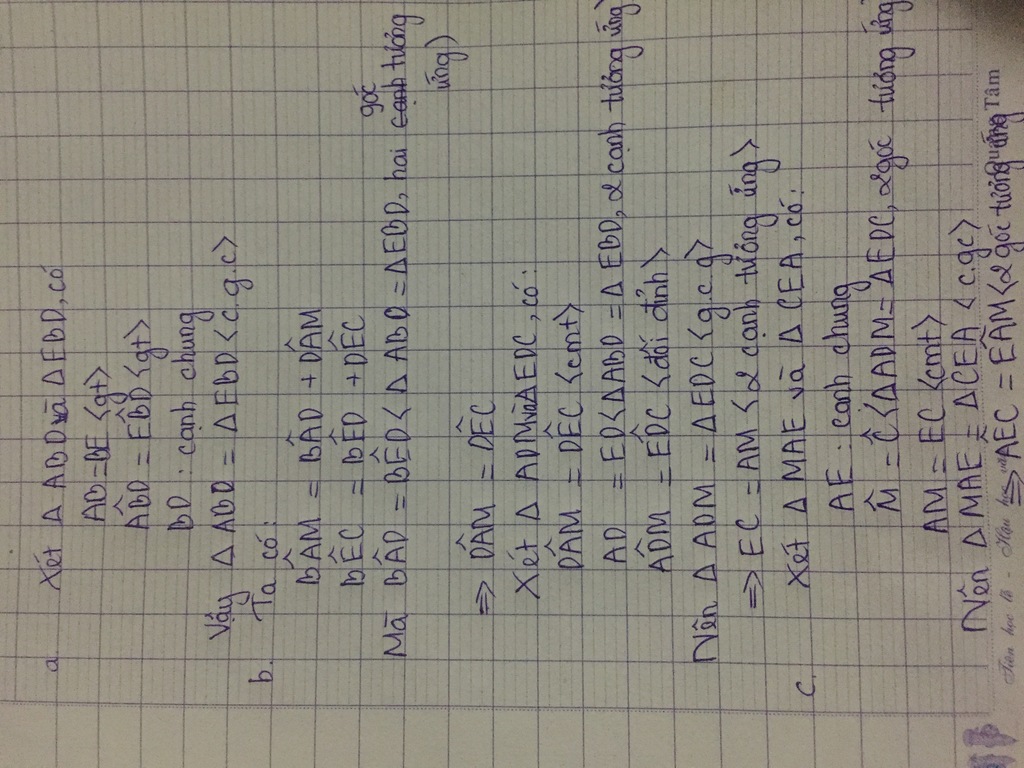 a. Xét Δ ABD và Δ EBD, có
AB = BE <gt>
AB̂D = EB̂D <gt>
BD : cạnh chung
Vậy Δ ABD = Δ EBD < c.g.c>
b. Ta có:
BÂM = BÂD + DÂM
BÊC = BÊD + DÊC
Mà BÂD = BÊD < Δ ABD = Δ EBD, hai góc tương
ứng)
=> DÂM = DÊC
Xét Δ ADM và Δ EDC, có:
DÂM = DÊC <cmt>
AD = ED < Δ ABD = Δ EBD, 2 cạnh tương ứng
AD̂M = ED̂C <đối đỉnh>
Nên Δ ADM = Δ EDC <g.c.g>
=> EC = AM < 2 cạnh tương ứng>
c. Xét Δ MAE và Δ CEA, có:
AE : cạnh chung
M̂ = Ĉ < Δ ADM = Δ EDC, 2 góc tương ứng
AM = EC <cmt>
Nên Δ MAE = Δ CEA < c.g.c>
=> AÊC = EÂM < 2 góc tương ứng
Tiên học lễ - Hậu học
Tâm